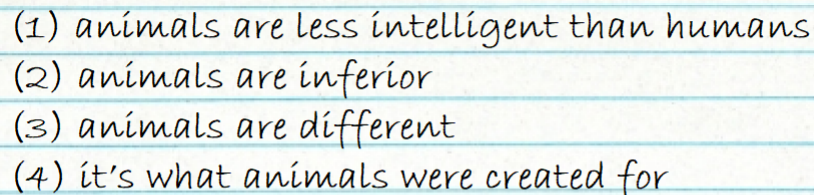 (1) animals are less intelligent than humans
(2) animals are inferior
(3) animals are different
(4) it's what animals were created for